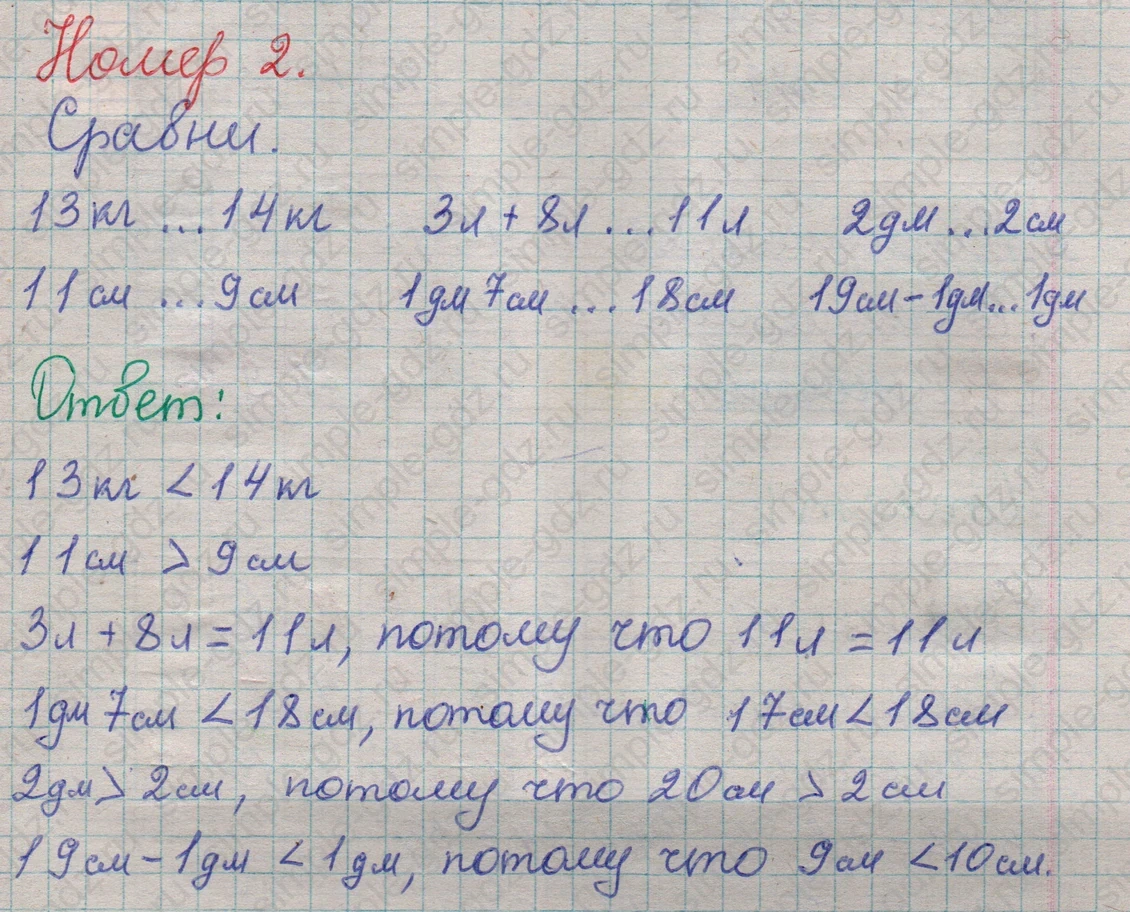 Номер 2.
Сравни.
13кг ... 14кг 3л + 8л ... 11л 2дм ... 2см
11см ... 9см 1дм 7см ... 18см 19см - 1дм ... 1дм
Ответ:
13кг < 14кг
11см > 9см
3л + 8л = 11л, потому что 11л = 11л
1дм 7см < 18см, потому что 17см < 18см
2дм > 2см, потому что 20см > 2см
19см - 1дм < 1дм, потому что 9см < 10см.
simple-gdz.ru